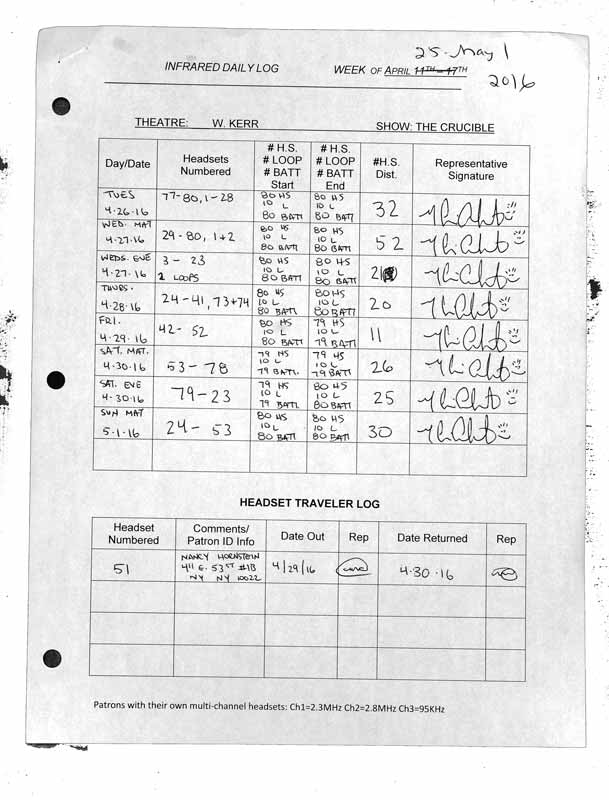 25 - May 1
2016
INFRARED DAILY LOG WEEK OF APRIL 11TH - 17TH
THEATRE: W. KERR SHOW: THE CRUCIBLE
Day/Date Headsets Numbered # H.S. # LOOP # BATT Start # H.S. # LOOP # BATT End #H.S. Dist. Representative Signature
TUES 4.26.16 77-80, 1-28 80 HS 10 L 80 BATT 80 HS 10 L 80 BATT 32
WED. MAT 4.27.16 29-80, 1+2 80 HS 10 L 80 BATT 80 HS 10 L 80 BATT 52
WEDS. EVE 4.27.16 3 - 23 2 LOOPS 80 HS 10 L 80 BATT 80 HS 10 L 80 BATT 21
THURS. 4.28.16 24-41, 73+74 80 HS 10 L 80 BATT 80 HS 10 L 80 BATT 20
FRI. 4.29.16 42- 52 80 HS 10 L 80 BATT 79 HS 10 L 79 BATT 11
SAT. MAT. 4.30.16 53 - 78 79 HS 10 L 79 BATT. 79 HS 10 L 79 BATT 26
SAT. EVE 4.30.16 79-23 79 HS 10 L 79 BATT. 80 HS 10 L 80 BATT 25
SUN MAT 5.1.16 24 - 53 80 HS 10 L 80 BATT 80 HS 10 L 80 BATT 30
HEADSET TRAVELER LOG
Headset Numbered Comments/ Patron ID Info Date Out Rep Date Returned Rep
51 NANCY HORNSTEIN 411 E. 53ST #1B NY NY 10022 4/29/16 4.30.16
Patrons with their own multi-channel headsets: Ch1=2.3MHz Ch2=2.8MHz Ch3=95KHz